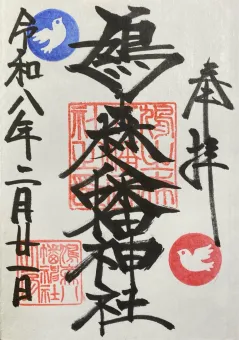 奉拝
鳩森八幡神社
令和八年二月廿一日